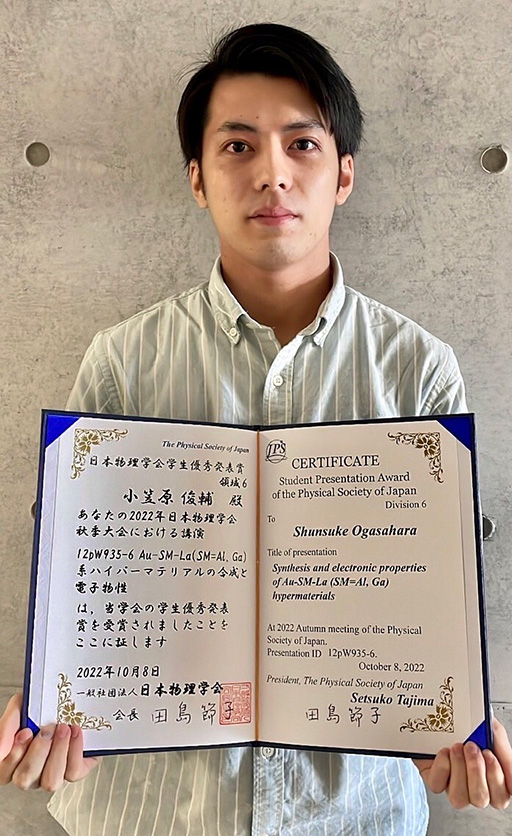 The Physical Society of Japan
日本物理学会学生優秀発表賞
領域6
小笠原 俊輔 殿
あなたの2022年日本物理学会
秋季大会における講演
12pW935-6 Au-SM-La(SM=Al, Ga)
系ハイパーマテリアルの合成と
電子物性
は、当学会の学生優秀発表
賞を受賞されましたことを
ここに証します
2022年10月8日
一般社団法人日本物理学会
会長 田島節子
JPS
CERTIFICATE
Student Presentation Award
of the Physical Society of Japan
Division 6
To
Shunsuke Ogasahara
Title of presentation
Synthesis and electronic properties
of Au-SM-La (SM=Al, Ga)
hypermaterials
At 2022 Autumn meeting of the Physical
Society of Japan.
Presentation ID 12pW935-6.
October 8, 2022
President, The Physical Society of Japan
Setsuko Tajima
田島節子